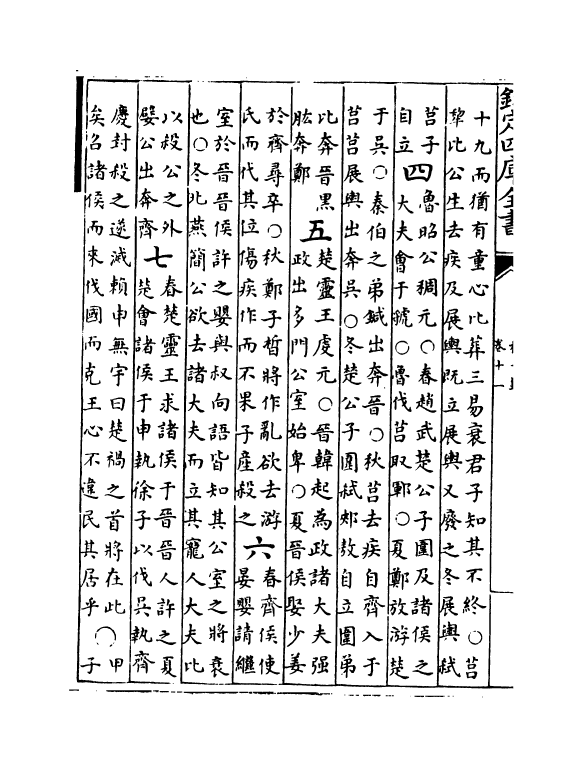 欽定四庫全書
卷十一
十九而猶有童心比葬三易衰君子知其不終〇莒
犂比公生去疾及展輿既立展輿又廢之冬展輿弑
莒子
自立
四
魯昭公稠元〇春趙武楚公子圍及諸侯之
大夫會于虢〇魯伐莒取鄆〇夏鄭放游楚
于吳〇秦伯之弟鍼出奔晉〇秋莒去疾自齊入于
莒莒展輿出奔吳〇冬楚公子圍弑郟敖自立圍弟
比奔晉黑
肱奔鄭
五
楚靈王虔元〇晉韓起為政諸大夫强
政出多門公室始卑〇夏晉侯娶少姜
於齊尋卒〇秋鄭子晳將作亂欲去游
氏而代其位傷疾作而不果子產殺之
六
春齊侯使
晏嬰請繼
室於晉晉侯許之嬰與叔向語皆知其公室之將衰
也〇冬北燕簡公欲去諸大夫而立其寵人大夫比
以殺公之外
嬖公出奔齊
七
春楚靈王求諸侯于晉晉人許之夏
楚會諸侯于申執徐子以伐吳執齊
慶封殺之遂滅賴申無宇曰楚禍之首將在此〇甲
矣召諸侯而來伐國而克王心不違民其居乎子